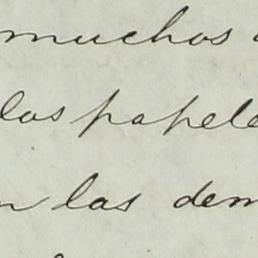 muchos
los papele
n las dem